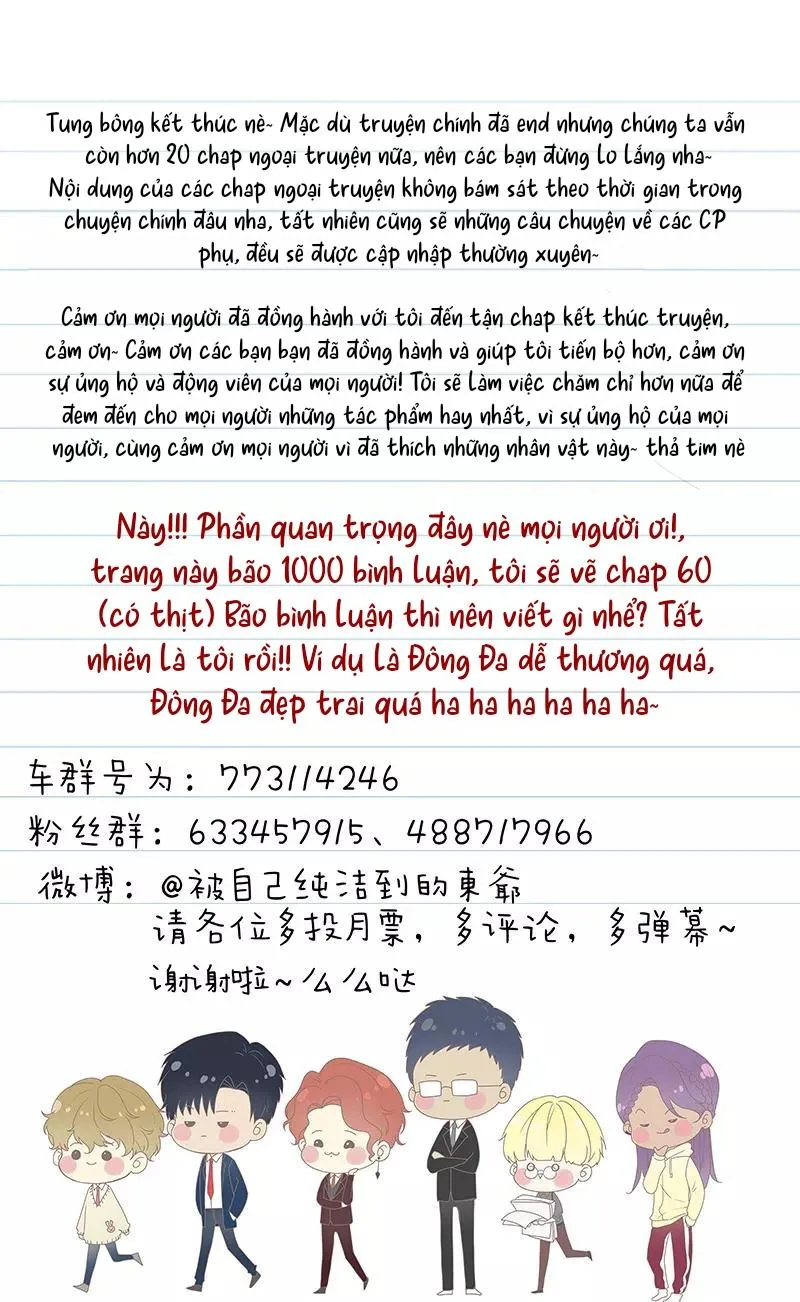 Tung bông kết thúc nè~ Mặc dù truyện chính đã end nhưng chúng ta vẫn
còn hơn 20 chap ngoại truyện nữa, nên các bạn đừng lo lắng nha~
Nội dung của các chap ngoại truyện không bám sát theo thời gian trong
chuyện chính đâu nha, tất nhiên cũng sẽ những câu chuyện về các CP
phụ, đều sẽ được cập nhập thường xuyên~
Cảm ơn mọi người đã đồng hành với tôi đến tận chap kết thúc truyện,
cảm ơn~ Cảm ơn các bạn bạn đã đồng hành và giúp tôi tiến bộ hơn, cảm ơn
sự ủng hộ và động viên của mọi người! Tôi sẽ làm việc chăm chỉ hơn nữa để
đem đến cho mọi người những tác phẩm hay nhất, vì sự ủng hộ của mọi
người, cùng cảm ơn mọi người vì đã thích những nhân vật này~ thả tim nè
Này!!! Phần quan trọng đây nè mọi người ơi!,
trang này bão 1000 bình luận, tôi sẽ vẽ chap 60
(có thịt) Bão bình luận thì nên viết gì nhể? Tất
nhiên là tôi rồi!! Ví dụ là Đông Đa dễ thương quá,
Đông Đa đẹp trai quá ha ha ha ha ha ha~
车群号为：773114246
粉丝群：633457915、488717966
微博：@被自己纯洁到的東爺
请各位多投月票，多评论，多弹幕~
谢谢啦~么么哒